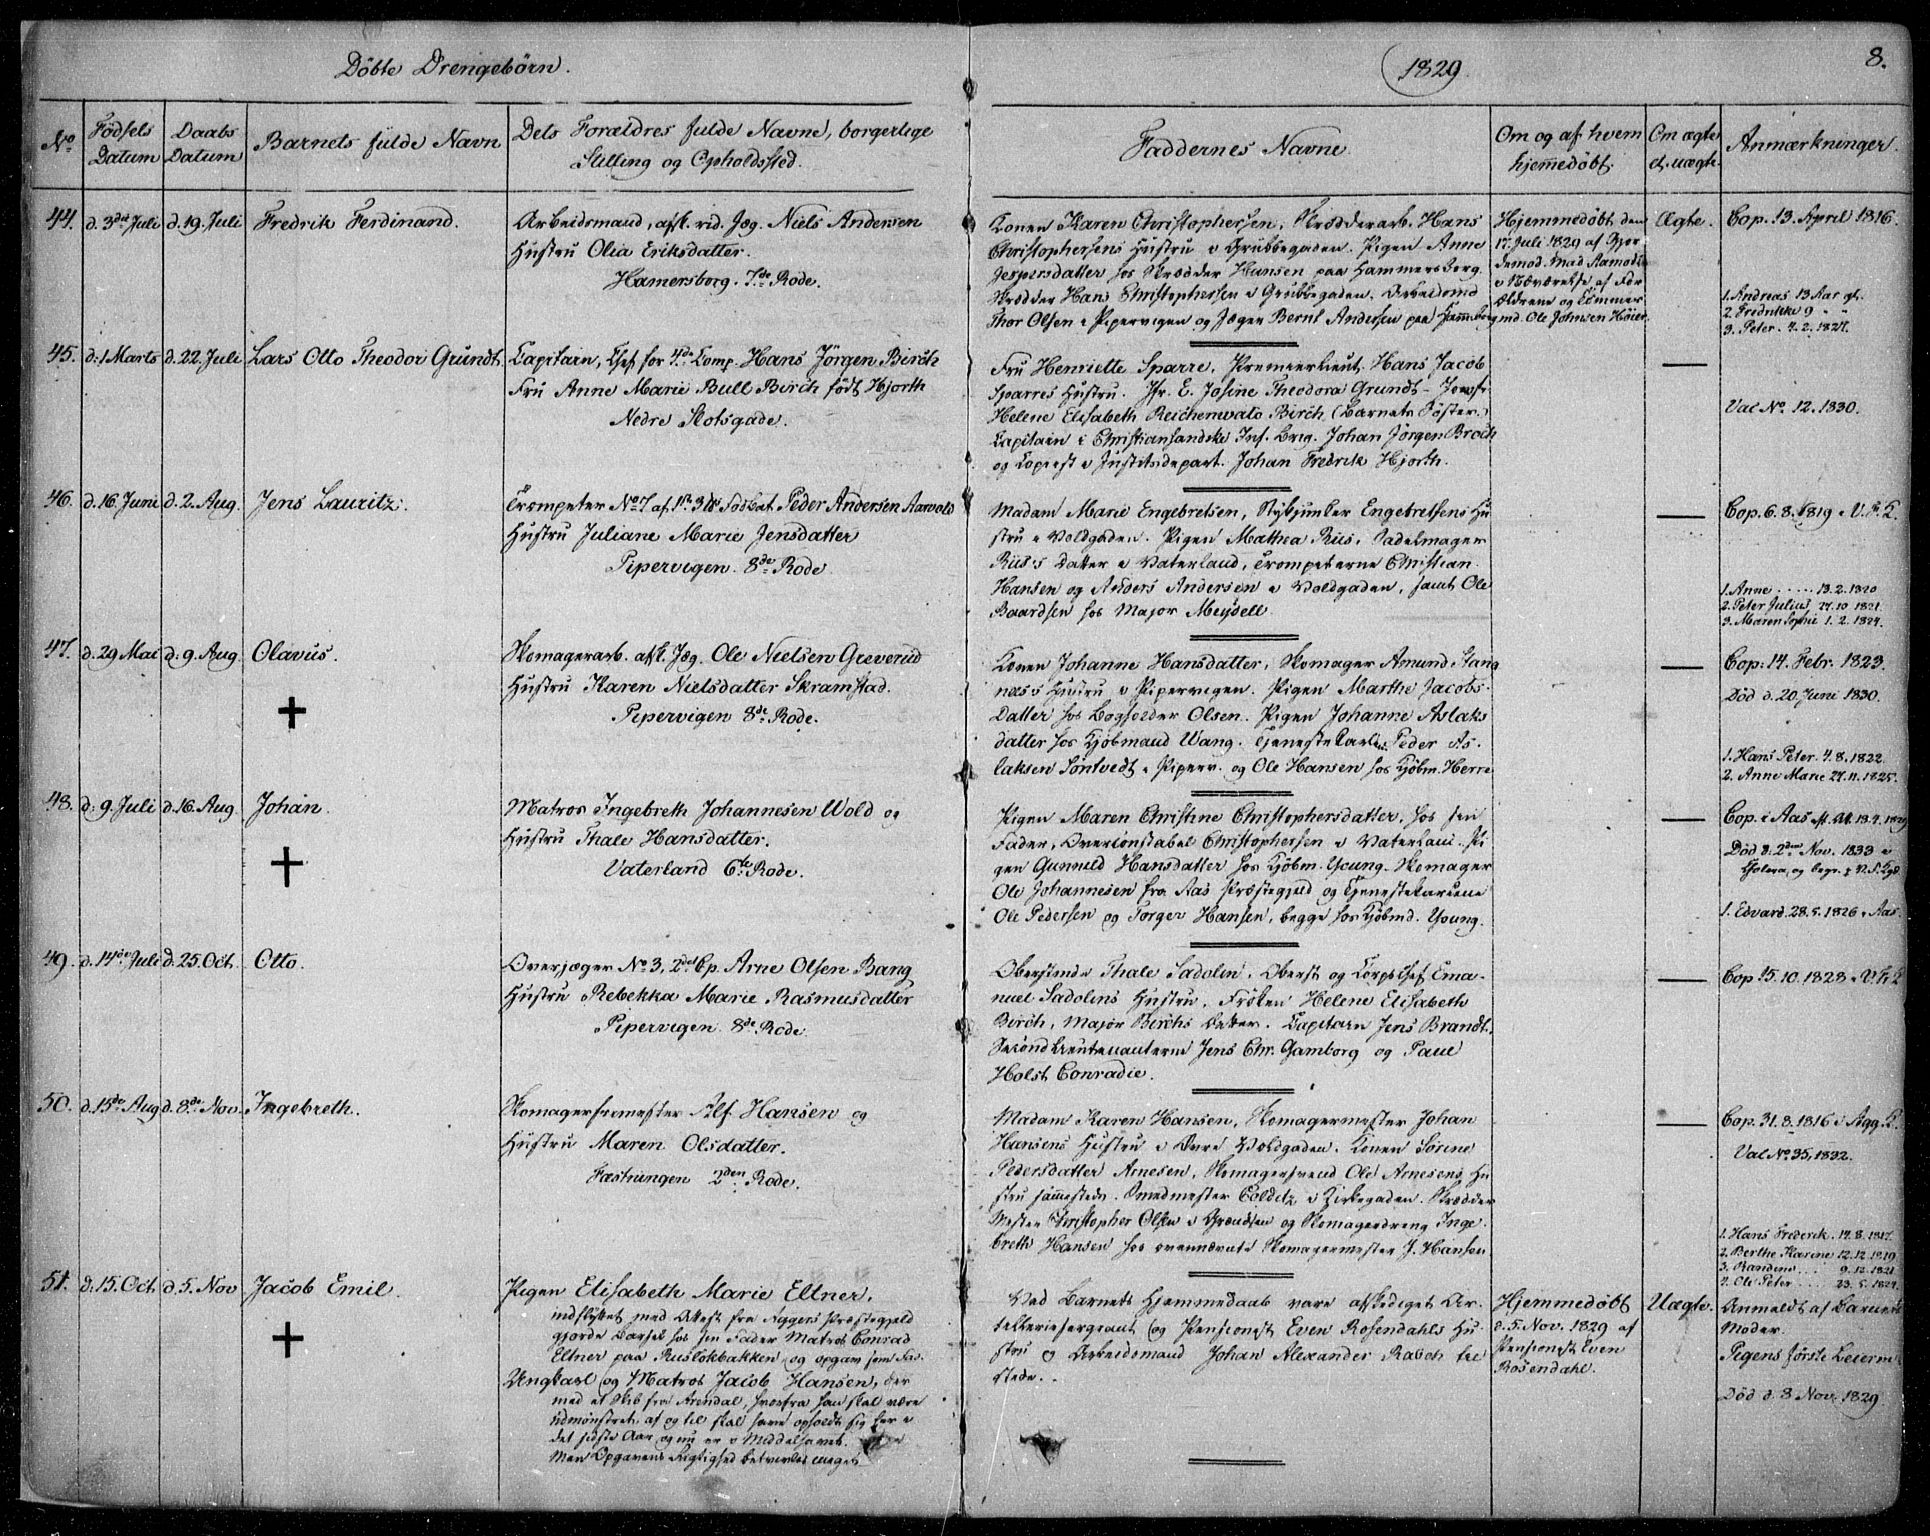 Döbte Drengebörn.
1829.
8.
No
Födsels Datum
Daabs Datum
Barnets fulde Navn
Dets Forældres fulde Navne, borgerlige
Stilling og Opholdssted.
Faddernes Navne
Om og af hvem
hjemmedöbt.
Om ægte
el. uægte.
Anmærkninger.
44. d. 3die Juli d. 19. Juli Fredrik Ferdinand.
Arbeidsmand, afsk. rid. Jæg. Niels Andersen
Hustru Olia Eriksdatter.
Hamersborg. 7de Rode.
Konen Karen Christophersen, Skrædderarb. Hans
Christophersens Hustru i Grubbegaden. Pigen Anne
Jespersdatter hos Skrædder Hansen paa Hammersborg.
Skrædder Hans Christophersen i Grubbegaden. Arbeidsmd
Thor Olsen i Pipervigen og Jæger Bernt Andersen paa Hammbrg
Hjemmedöbt den
17. Juli 1829 af Gjor
demod. Mad Aamodt
i Nærværelse af For
ældrene og Tömmer
md. Ole Johnsen Höier.
Ægte.
Cop. 13. April 1816.
1. Andreas 13 Aar gl.
2. Fredrikke 9 " "
3. Peter. 4. 2. 1827.
45. d. 1 Marts d. 22. Juli Lars Otto Theodor Grundt.
Capitain, Chef for 4de Comp. Hans Jörgen Birch
Fru Anne Marie Bull Birch födt Hjorth
Nedre Slotsgade.
Fru Henriette Sparre, Premierlieut. Hans Jacob
Sparres Hustru. Jfr. E. Josine Theodora Grundt - Jomfr.
Helene Elisabeth Reichenwald Birch (Barnets Söster.)
Capitain i Christiansandske Inf. Brig. Johan Jörgen Broch
og Copiist i Justitsdepart. Johan Fredrik Hjorth.
Vac No. 12. 1830.
46. d. 16. Juni d. 2. Aug. Jens Lauritz.
Trompeter No 7 af Peder Andersen Aarvold
Hustru Juliane Marie Jensdatter
Pipervigen. 8de Rode
Madam Marie Engebretsen, Stykjunker Engebretsens Hu
stru i Voldgaden. Pigen Mathea Riis, Sadelmager
Riis's Datter i Vaterland, Trompeterne Christian
Hansen og Anders Andersen i Voldgaden, samt Ole
Baardsen hos Major Meydell.
Cop. 6. 8. 1819 i V. F. K.
1. Anne . . . . . 13. 2. 1820
2. Peter Julius 27. 10 1821.
3. Maren Sophie 1. 2. 1824.
47. d. 29 Mai d. 9. Aug. Olavus.
Skomagerarb. afsk. Jæg. Ole Nielsen Greverud
Hustru Karen Nielsdatter Skramstad.
Pipervigen 8de Rode.
Konen Johanne Hansdatter, Skomager Amund Stang
næs's Hustru i Pipervigen. Pigen Marthe Jacobs-
Datter hos Bogholder Olsen. Pigen Johanne Aslaks
datter hos Kjöbmand Wang. Tjenestekarlen Peder As
laksen Söntvedt i Piperv. og Ole Hansen hos Kjöbm. Herre
Cop: 14. Febr. 1823.
Död d. 20. Juni 1830.
1. Hans Peter. 4. 8. 1822.
2. Anne Marie 27. 11. 1825.
48. d: 9. Juli d. 16. Aug. Johan.
Matros Ingebreth Johannesen Wold og
Hustru Thale Hansdatter.
Vaterland 6te Rode.
Pigen Maren Christine Christophersdatter, hos sin
Fader, Overconstabel Christophersen i Vaterland. Pi
gen Gunnuld Hansdatter hos Kjöbm. Young. Skomager
Ole Johannesen fra Aas Præstegjeld og Tjenestekarlene
Ole Pedersen og Torger Hansen, begge hos Kjöbmd. Young.
Cop. i Aas
Död d. 2den Nov. 1833 i
Cholera, og begr.
1. Edvard. 28. 5. 1826 i Aas.
49. d. 14de Juli d. 25. Oct. Otto.
Overjæger No 3, 2det Cp. Arne Olsen Bang
Hustru Rebekka Marie Rasmusdatter
Pipervigen. 8de Rode.
Oberstinde Thale Sadolin, Oberst og Corpschef Ema-
nuel Sadolins Hustru, Fröken Helene Elisabeth
Birch, Major Birchs Datter. Capitain Jens Brandt.
Secondlieutenanterne Jens Chr. Gamborg og Paul
Holst Conradie.
Cop. 15. 10. 1828 i
50. d. 15de Aug d. 8de Nov. Ingebreth.
Skomagermester Alf Hansen og
Hustru Maren Olsdatter.
Fæstningen 2den Rode.
Madam Karen Hansen, Skomagermester Johan
Hansens Hustru i Övre Voldgaden. Konen Sörine
Pedersdatter Arnesen, Skomagersvend Ole Arnesens Hu
stru sammestede. Smedmester Colditz i Kirkegaden. Skrædder
Mester Christopher Olsen i Grændsen og Skomagerdreng Inge
breth Hansen hos ovennævnte Skomagermester J. Hansen
Cop. 31. 8. 1816 i Agg. K.
Vac No. 35, 1832.
1. Hans Frederik. 19. 8. 1817.
2. Berthe Karine 12. 12. 1819
3. Randine . . . 9. 12. 1821.
4. Ole Peter . . . 23. 5. 1824.
51. d. 15. Oct d. 5. Nov Jacob Emil.
Pigen Elisabeth Marie Eltner.
indflyttet med Attest fra Aggers Præstegjeld
gjorde Barsel hos sin Fader Matros Conrad
Eltner paa Ruslökbakken, og opgav som Fa-
Ungkarl og Matros Jacob Hansen, der
med et Skib fra Arendal, hvorfra han skal være
udmönstret, af og til skal have opholdt sig her i
det sidste Aar, og nu er i Middelhavet.
Men Opgavens Rigtighed betvivles meget.
Ved Barnets Hjemmedaab vare afskediget Ar-
tilleriesergeant (og Pensionist Even Rosendahls Hu-
stru og Arbeidsmand Johan Alexander Rasch til
stede.
Hjemmedöbt
d. 5 Nov. 1829 af
Pensionist Even
Rosendahl.
Uægte.
Anmeldt af Barnets
Moder.
Pigens förste Leierm
Död d. 8 Nov. 1829.